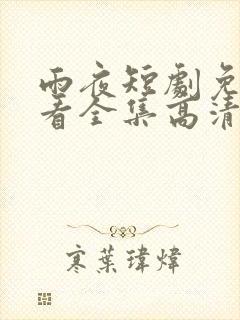 雨夜短劇免
看全集高清
寒葉瑋煒